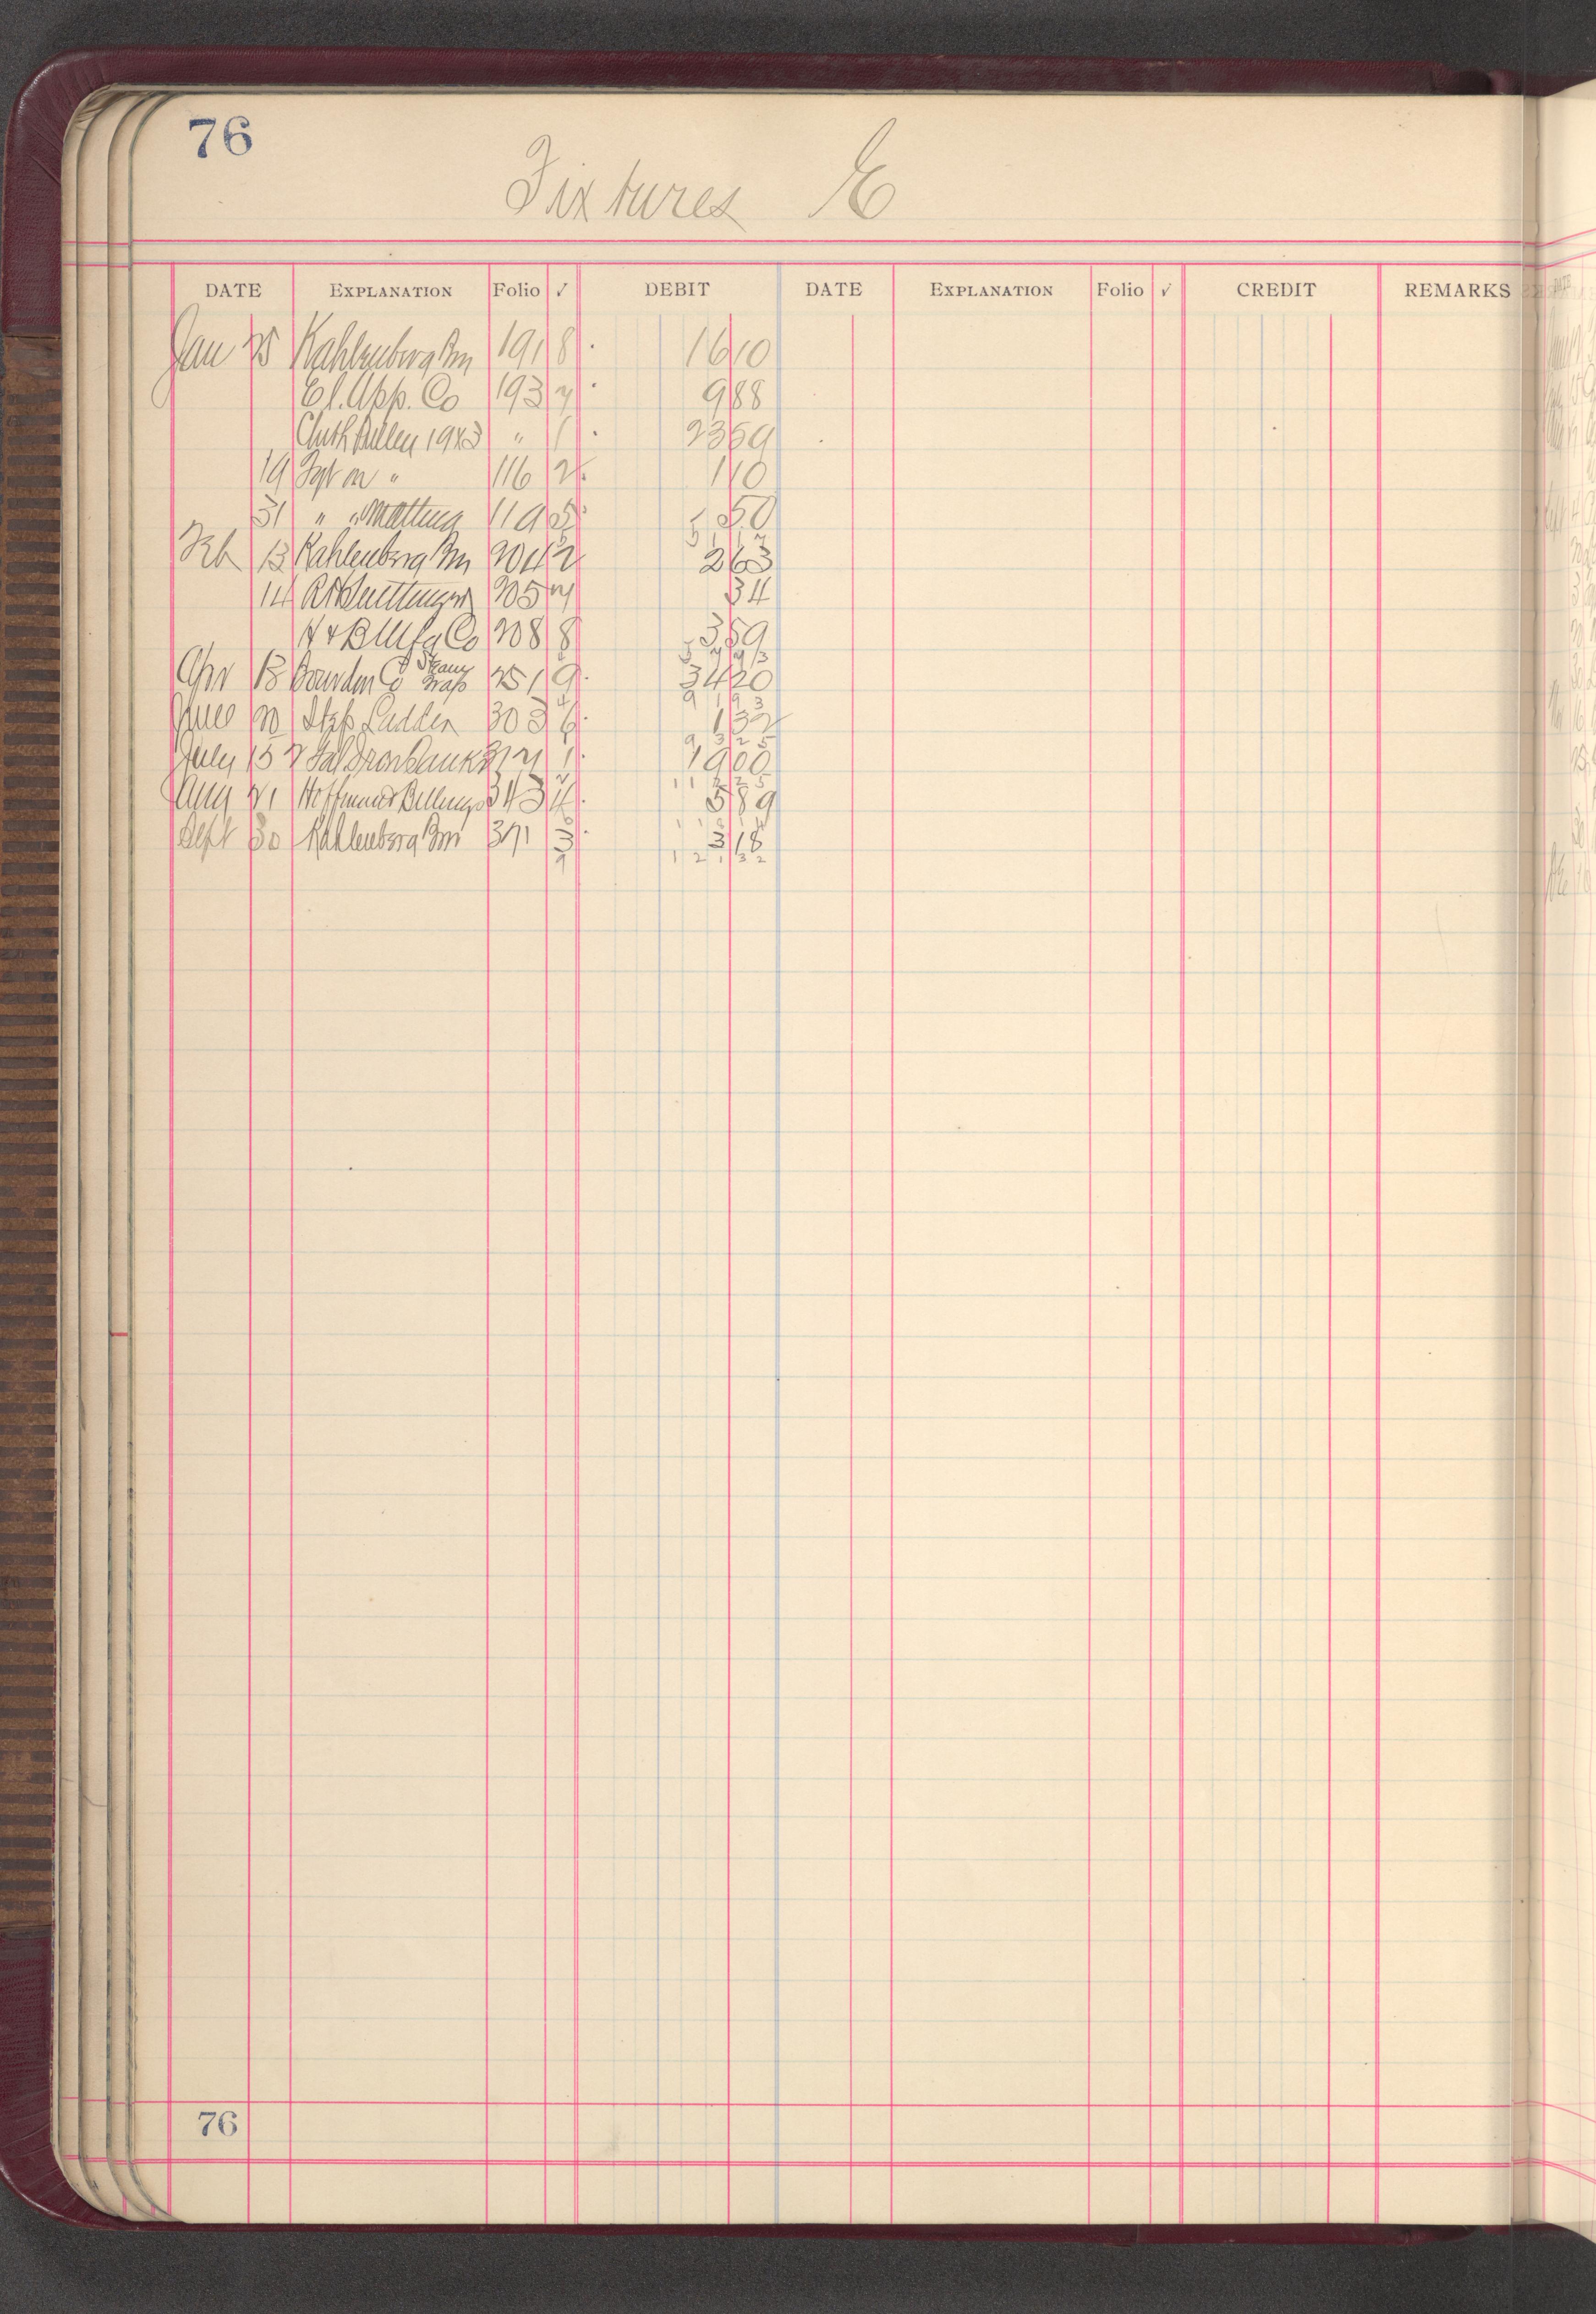 76
Fixtures E
DATE EXPLANATION Folio √ DEBIT DATE EXPLANATION Folio √ CREDIT REMARKS
Jan 25 Kahlenberg Bro 191 8 16 10
El. App. Co 193 7 9 88
1943 " 1 23 69
19 Frt on " 116 2 1 10
31 " " Matting 119 50
Feb 13 Kahlenberg Bro 204 2 2 63
14 205 7 34
Co 208 8 3 59
Apr 13 Co 251 9 34 20
June 20 Step Ladder 303 6 1 32
July 15 1 19 00
Aug 21 343 4 5 89
Sept 30 Kahlenberg Bro 371 3 3 18
1 2 1 3 2
76